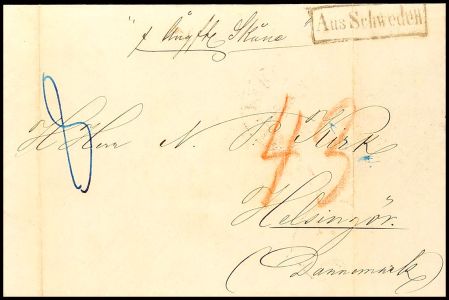 Aus Schweden
" p Ångftg Skåne "
8
HHerr N. P. Kirk
43
Helsingör.
(Dannemark)